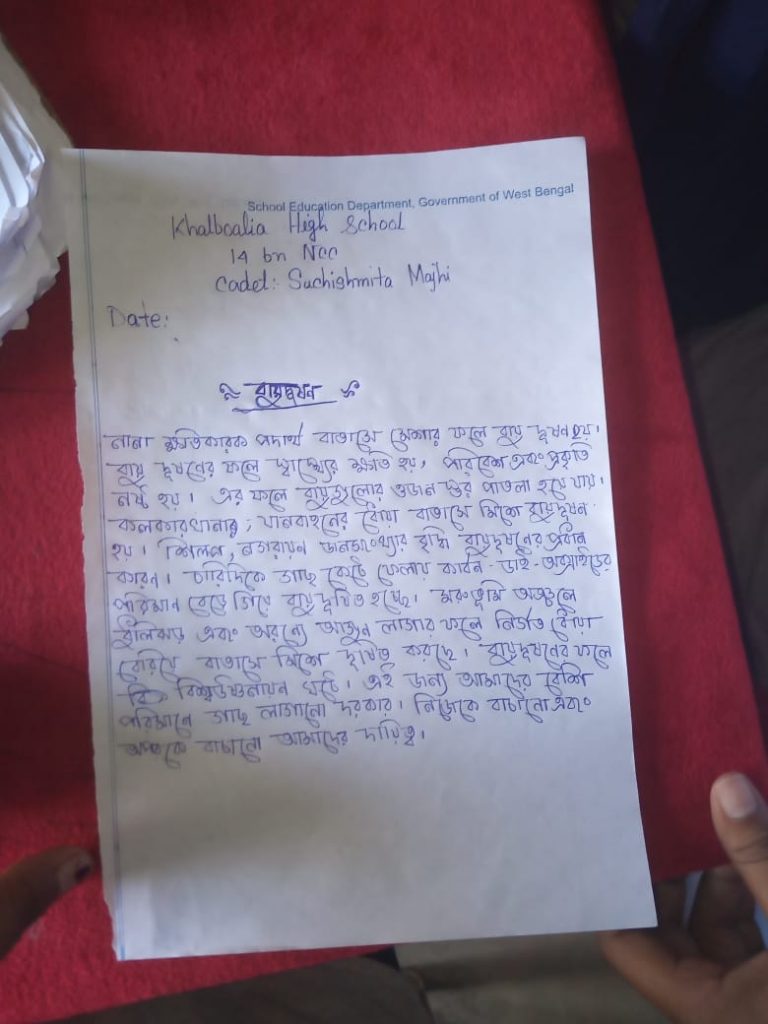 School Education Department, Government of West Bengal
Khalboalia High School
14 bn NCC
Cadet: Suchishmita Majhi
Date:
বায়ুদূষন
নানা ক্ষতিকারক পদার্থ বাতাসে মেশার ফলে বায়ু দূষন হয়।
বায়ু দূষনের ফলে স্বাস্থ্যের ক্ষতি হয়, পরিবেশ এবং প্রকৃতি
নষ্ট হয়। এর ফলে বায়ুমণ্ডলের ওজন স্তর পাতলা হয়ে যায়।
কলকারখানার, যানবাহনের ধোঁয়া বাতাসে মিশে বায়ুদূষন
হয়। শিল্পে, নগরায়ন জনসংখ্যার বৃদ্ধি বায়ুদূষনের প্রধান
কারন। চারিদিকে গাছ কেটে ফেলায় কার্বন-ডাই-অক্সাইডের
পরিমান বেড়ে গিয়ে বায়ু দূষিত হচ্ছে। মরুভূমি অঞ্চলে
ধুলিঝড় এবং অরন্যে আগুন লাগার ফলে নির্গত ধোঁয়া
বেরিয়ে বাতাসে মিশে দূষিত করছে। বায়ুদূষনের ফলে
বিশ্বউষ্ণায়ন ঘটে। এই জন্য আমাদের বেশি
পরিমানে গাছ লাগানো দরকার। নিজেকে বাচানো এবং
বাচানো আমাদের দায়িত্ব।